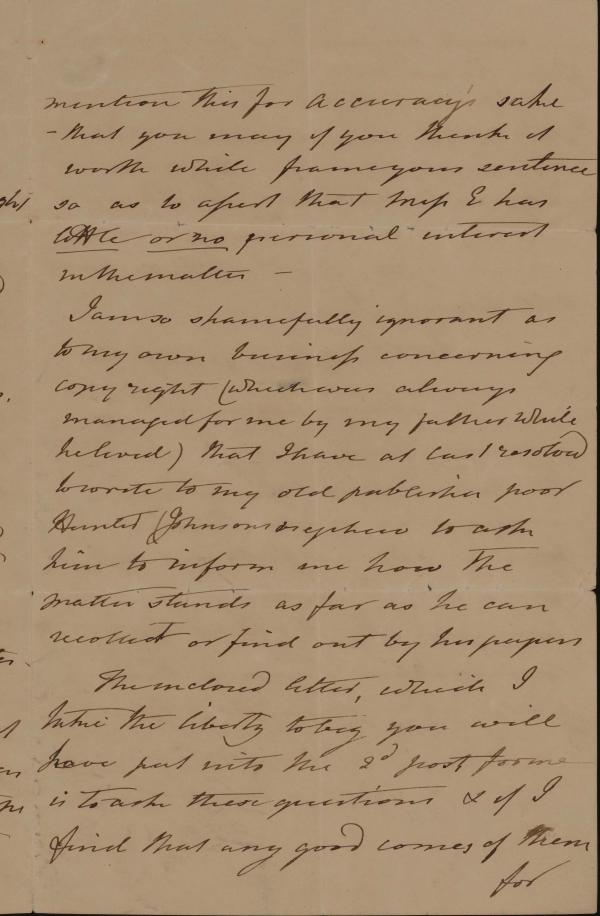 mention this for accuracy's sake
- that you may if you think it
worth while frame your sentence
so as to apert that Miss E has
little or no personal interest
in the matter -
I am so shamefully ignorant as
to my own business concerning
copy right (which was always
managed for me by my father while
he lived) that I have at last resolved
to write to my old publisher poor
Hunter (Johnsons nephew to ask
him to inform me how the
matter stands as far as he can
recollect or find out by his papers
The enclosed letter, which I
take the liberty to beg you will
have put into the 2d post for me
is to ask these questions & if I
find that any good comes of them
for